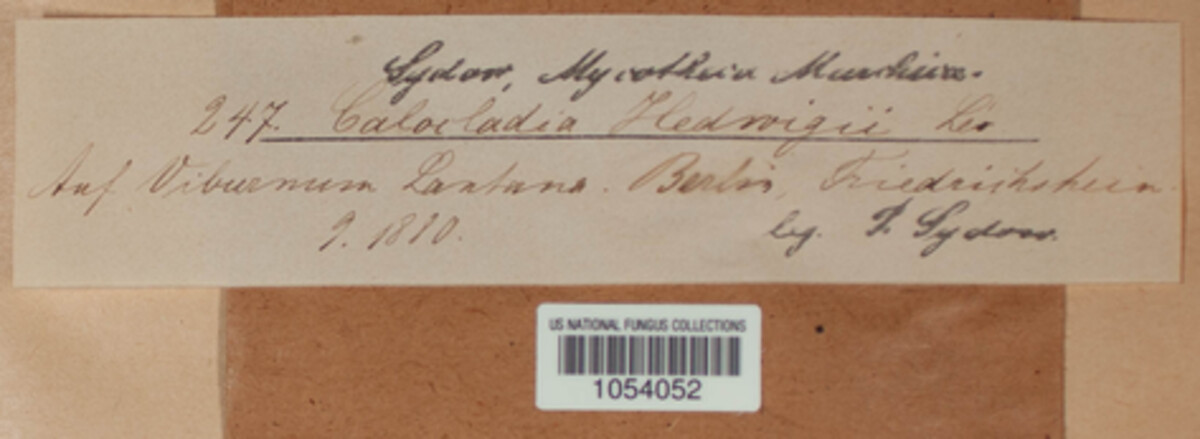 Sydow, Mycotheca Marchica.
247. Calocladia Hedwigii Lév
Auf Viburnum Lantana. Berlin, Friedrichshein.
9. 1880.
leg. P. Sydow.
US NATIONAL FUNGUS COLLECTIONS
1054052